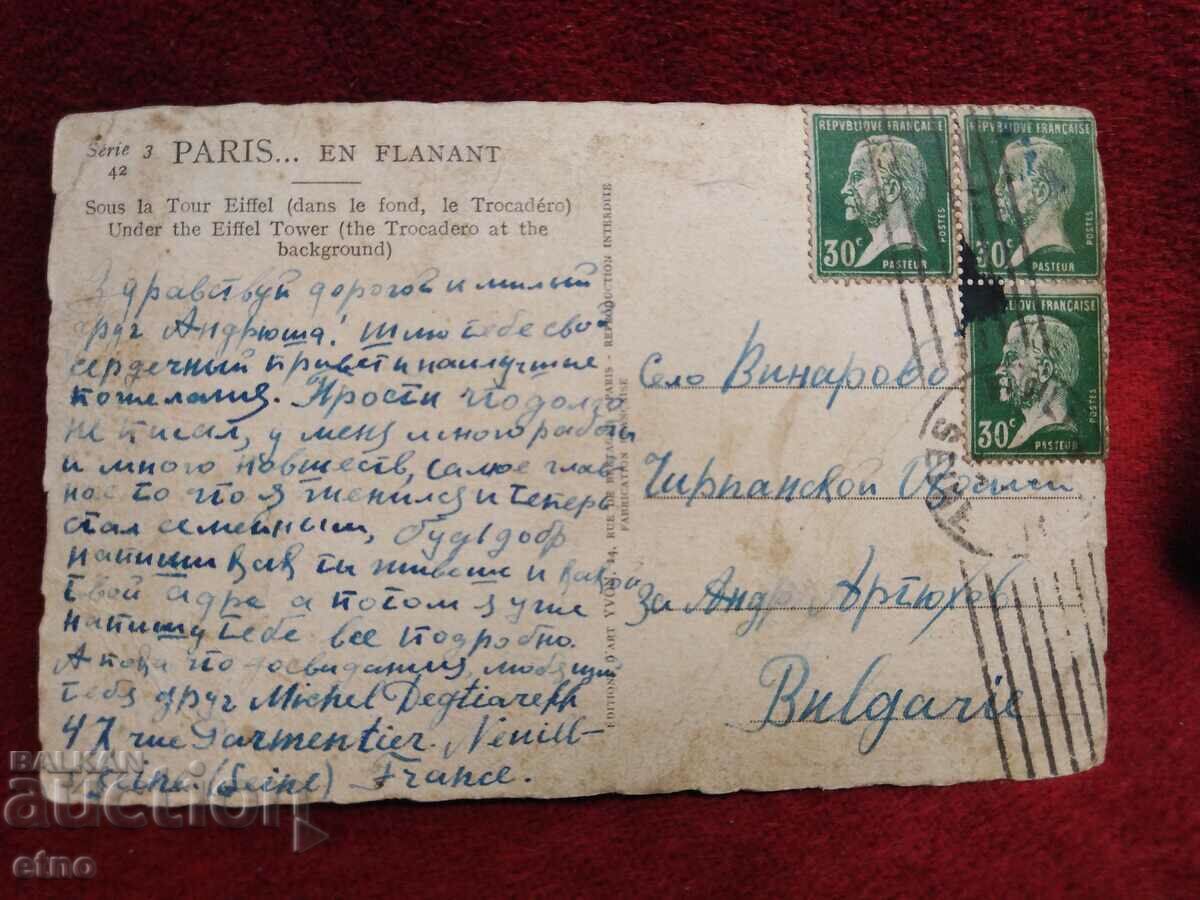 Série 3 PARIS... EN FLANANT
42
Sous la Tour Eiffel (dans le fond, le Trocadéro)
Under the Eiffel Tower (the Trocadero at the
background)
Здравствуй дорогой и милый
друг Андрюша! Шлю тебе сво-
сердечный привет и наилучшие
пожелания. Прости что долго
не писал, у меня много работы
и много новшеств, самое глав
ное то что я женился и теперь
стал семейным, будь добр
напиши как ты живешь и какой
твой адре а потом я уже
напишу тебе все подробно.
А пока что досвидания, любящий
тебя друг Michel Degtiareff
47 rue Parmentier. Neuill-
Seine. (Seine) France.
EDITIONS D'ART YVON, 14, RUE DE BRETAGNE, PARIS - REPRODUCTION INTERDITE
FABRICATION FRANÇAISE
REPVBLIQVE FRANÇAISE
30c
POSTES
PASTEUR
REPVBLIQVE FRANÇAISE
30c
POSTES
PASTEUR
REPVBLIQVE FRANÇAISE
30c
POSTES
PASTEUR
Село Винарово
Чирпанской
За Андр Артюхов
Bulgarie
BALKAN
auction
etno